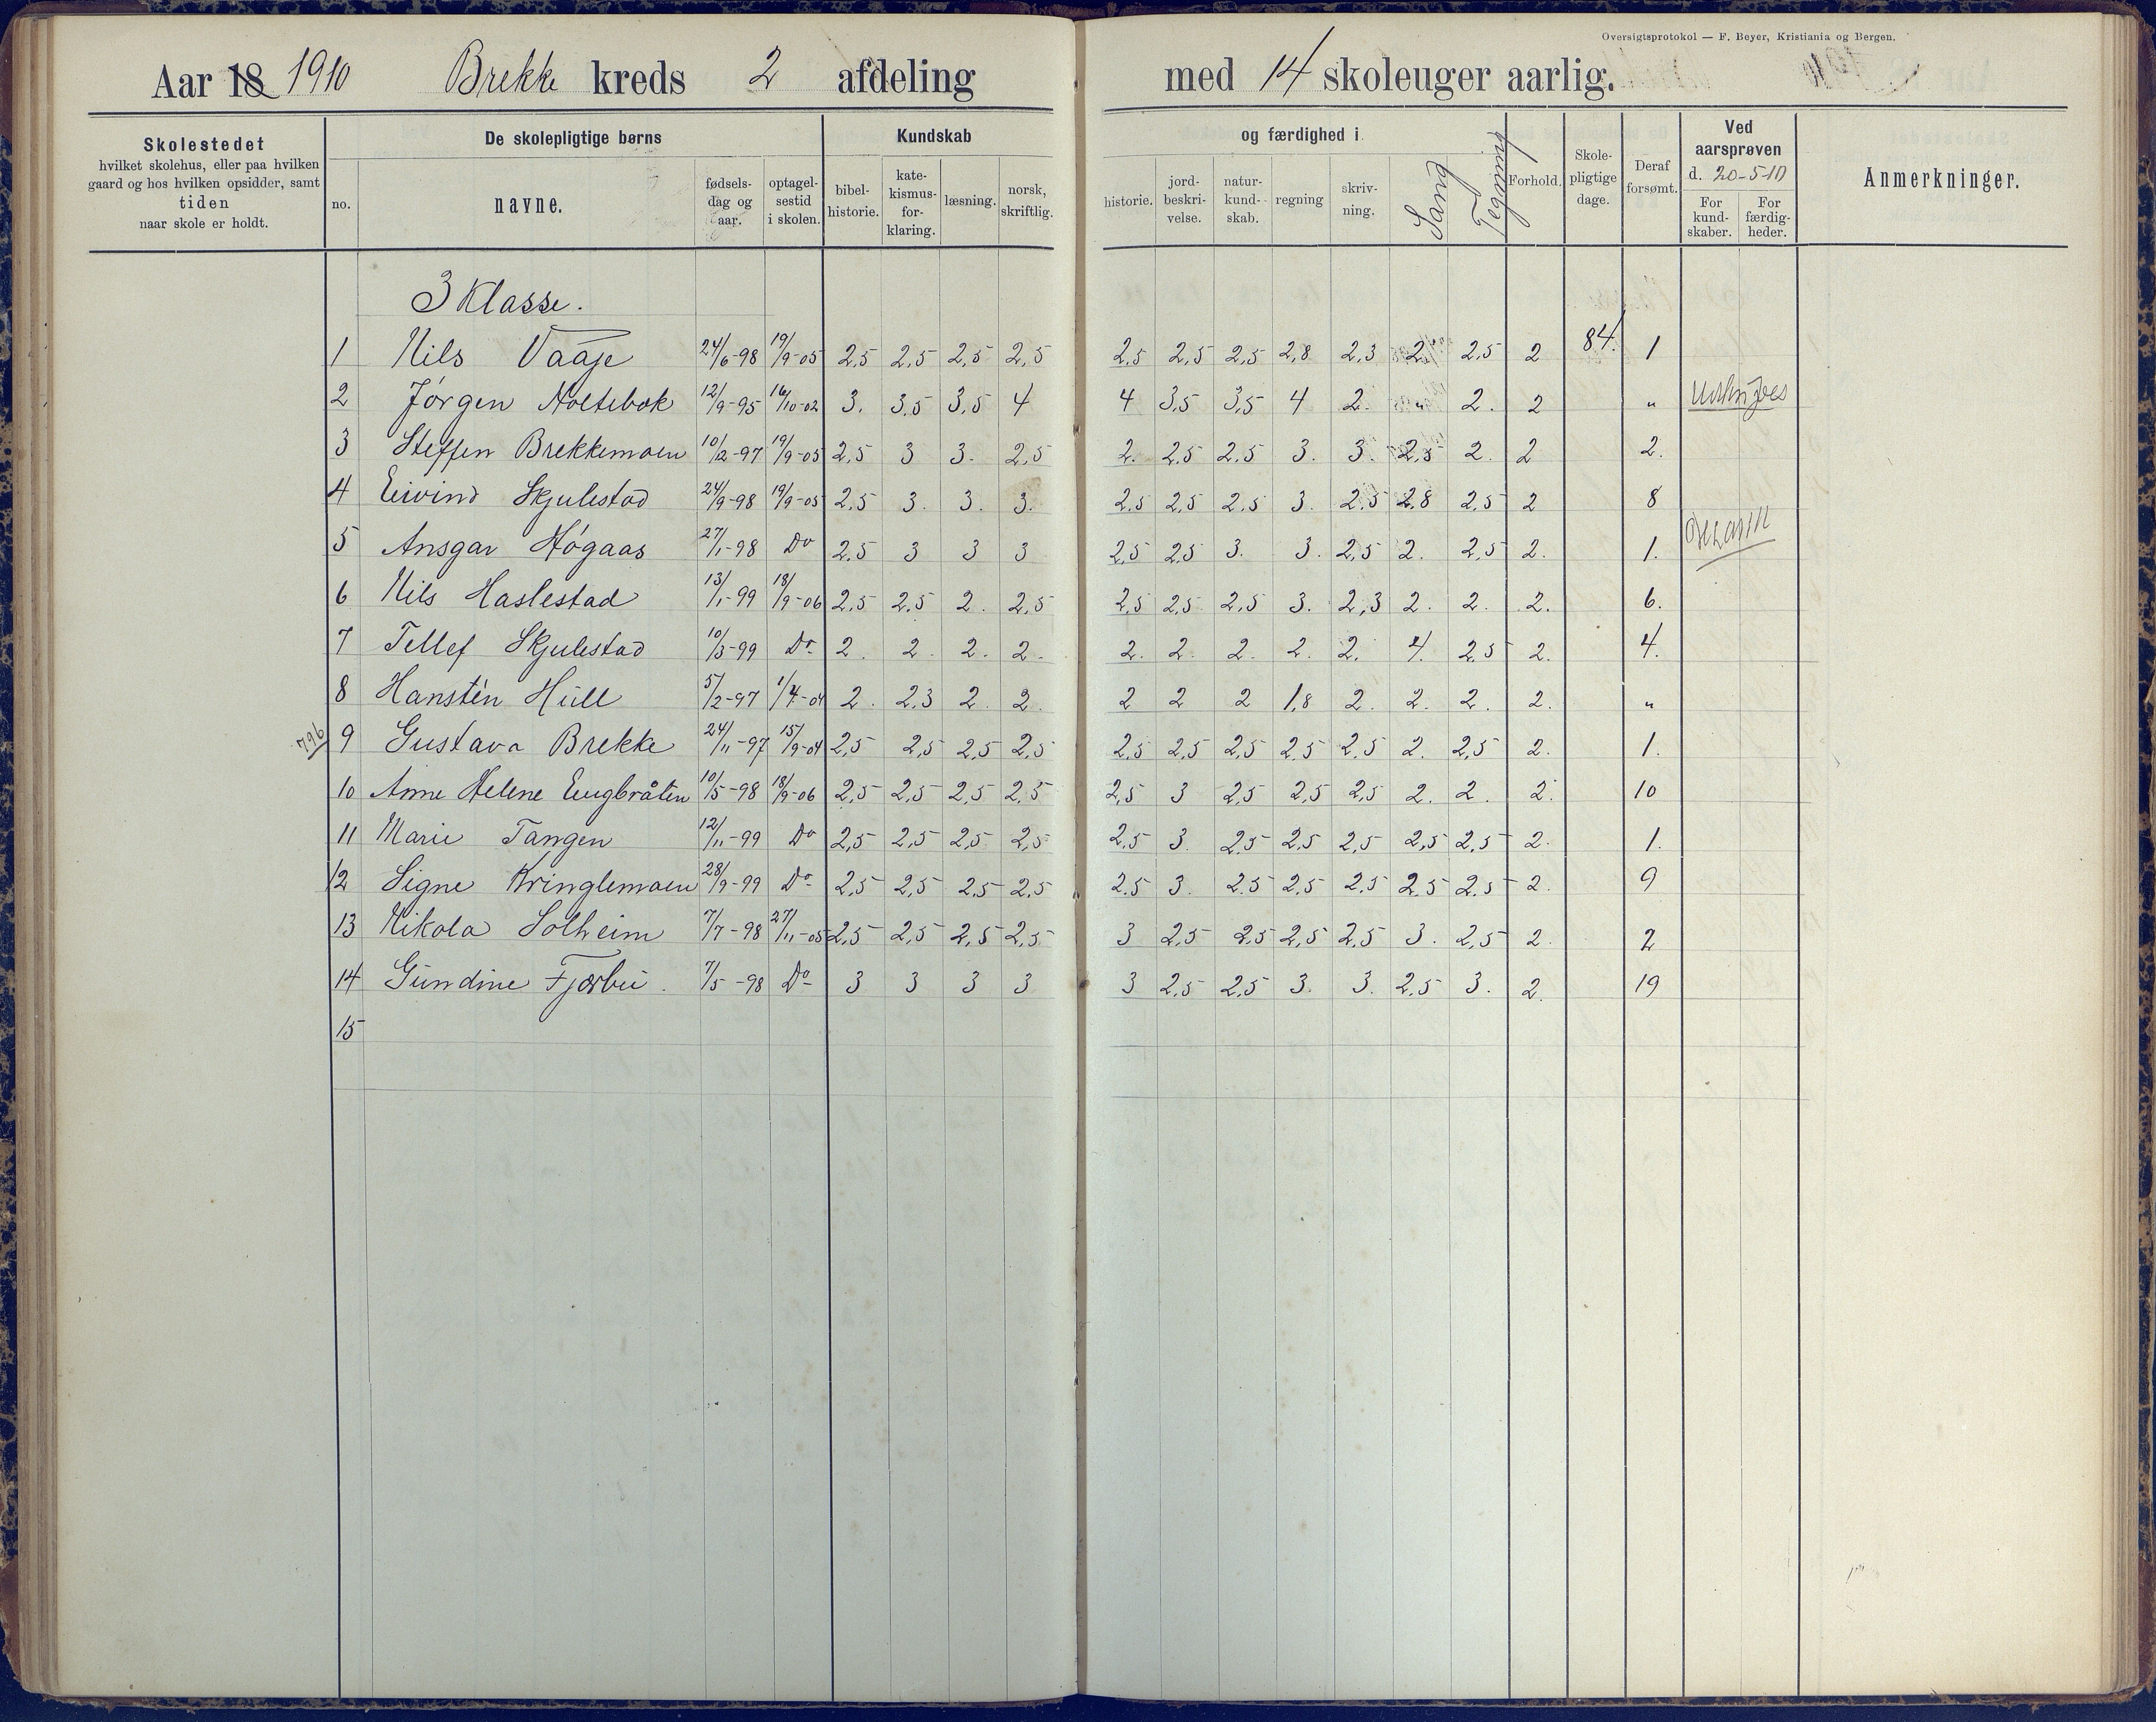 Oversigtsprotokol — F. Beyer, Kristiania og Bergen.
Aar 18 1910 Brekke kreds 2 afdeling med 14 skoleuger aarlig.
Skolestedet
hvilket skolehus, eller paa hvilken
gaard og hos hvilken opsidder, samt
tiden
naar skole er holdt.
De skolepligtige børns
no.
navne.
fødsels-
dag og
aar.
optagel-
sestid
i skolen.
Kundskab
bibel-
historie.
kate-
kismus-
for-
klaring.
læsning.
norsk,
skriftlig.
og færdighed i
historie.
jord-
beskri-
velse.
natur-
kund-
skab.
regning
skriv-
ning.
Sang
Tegning
Forhold.
Skole-
pligtige
dage.
Deraf
forsømt.
Ved
aarsprøven
d. 20-5-10
For
kund-
skaber.
For
færdig-
heder.
Anmerkninger.
3 Klasse.
1 Nils Vaaje 24/6-98 19/9-05 2,5 2,5 2,5 2,5 2,5 2,5 2,5 2,8 2,3 2 2,5 2 84. 1
2 Jørgen Holtebok 12/9-95 16/10-02 3. 3,5 3,5 4 4 3,5 3,5 4 2. " 2. 2 "
3 Steffen Brekkemoen 10/2-97 19/9-05 2,5 3 3. 2,5 2. 2,5 2,5 3. 3. 2,5 2. 2 2.
4 Eivind Skjulestad 24/9-98 19/9-05 2,5 3. 3. 3. 2,5 2,5 2,5 3. 2,5 2,8 2,5 2 8
5 Ansgar Høgaas 27/1-98 Do 2,5 3 3 3 2,5 2,5 3. 3. 2,5 2. 2,5 2. 1.
6 Nils Haslestad 13/1-99 18/9-06 2,5 2,5 2. 2,5 2,5 2,5 2,5 3. 2,3 2. 2. 2. 6.
7 Tellef Skjulestad 10/3-99 Do 2. 2. 2. 2. 2. 2. 2. 2. 2. 4. 2,5 2. 4.
8 Hanstén Hull 5/2-97 1/4-04 2. 2,3 2. 2. 2 2 2 1,8 2. 2. 2. 2. "
796
9 Gustava Brekke 24/11-97 15/9-04 2,5 2,5 2,5 2,5 2,5 2,5 2,5 2,5 2,5 2. 2,5 2. 1.
10 Anne Helene Eugbråten 10/5-98 18/9-06 2,5 2,5 2,5 2,5 2,5 3 2,5 2,5 2,5 2. 2. 2. 10
11 Marie Tangen 12/11-99 Do 2,5 2,5 2,5 2,5 2,5 3. 2,5 2,5 2,5 2,5 2,5 2. 1.
12 Signe Kringlemoen 28/9-99 Do 2,5 2,5 2,5 2,5 2,5 3. 2,5 2,5 2,5 2,5 2,5 2. 9
13 Nikola Solheim 7/7-98 27/11-05 2,5 2,5 2,5 2,5 3 2,5 2,5 2,5 2,5 3. 2,5 2. 2
14 Gundine Fjærbu. 7/5-98 Do 3 3 3 3 3 2,5 2,5 3. 3. 2,5 3. 2. 19
15